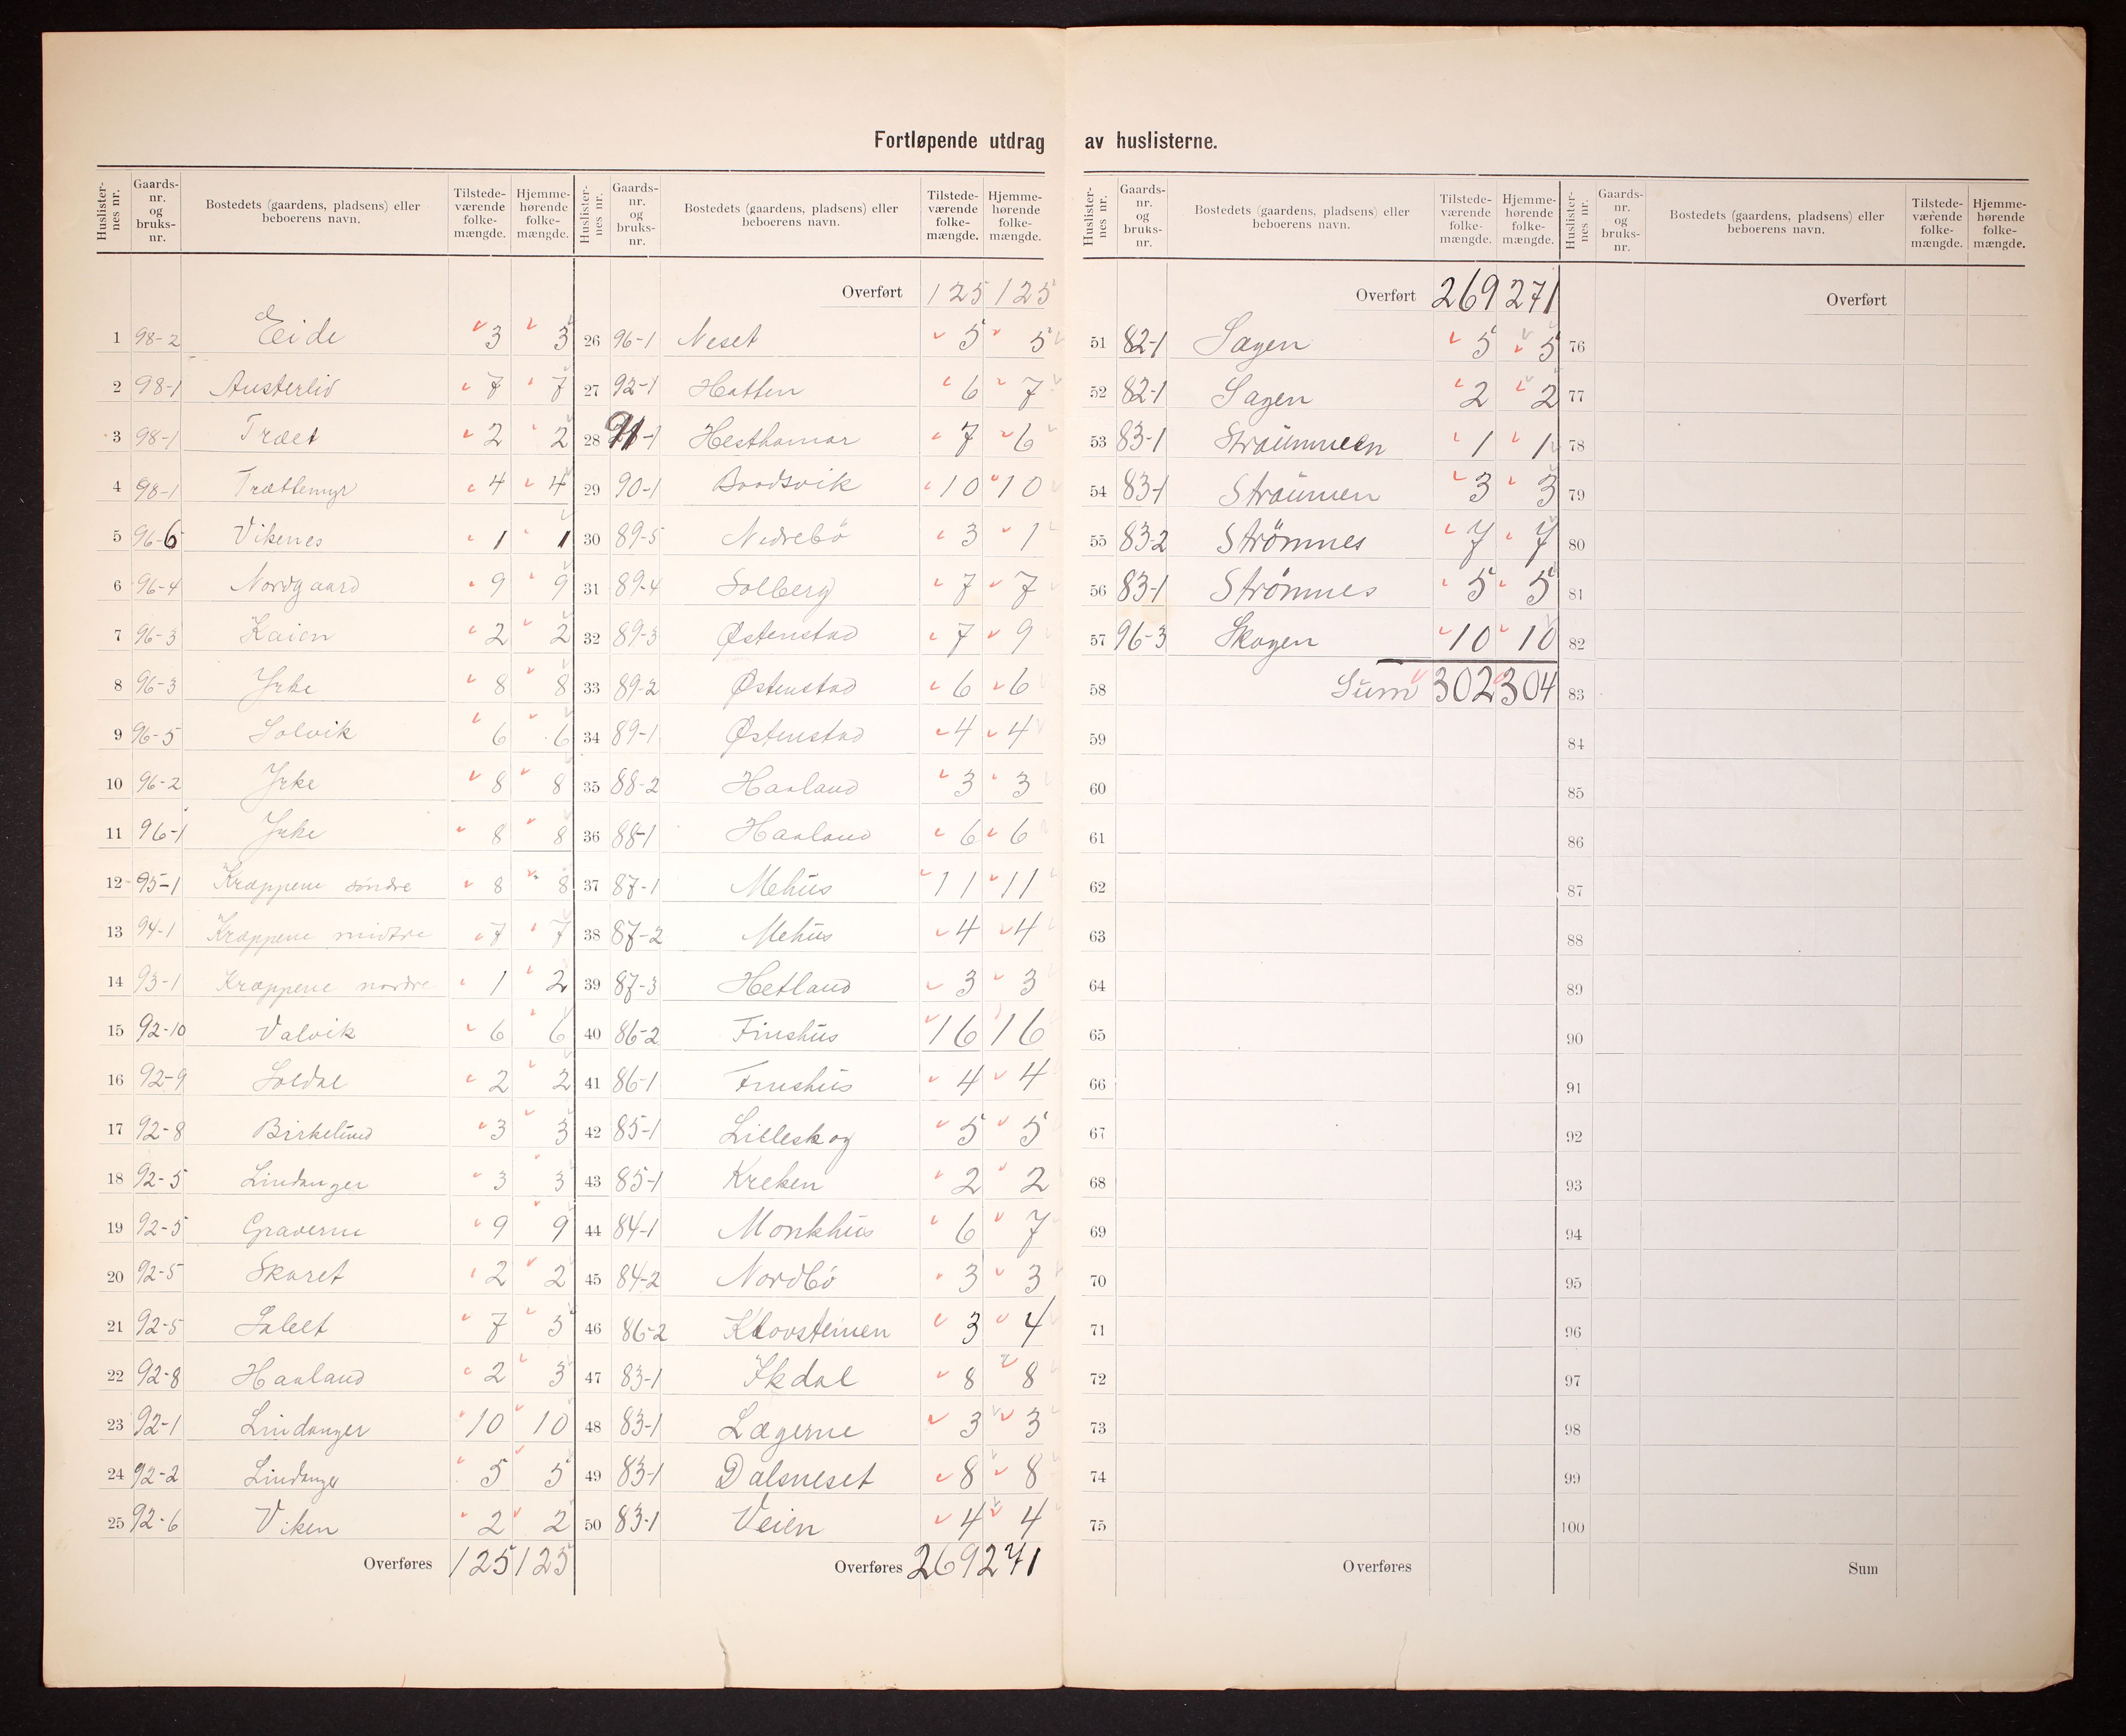 Fortløpende utdrag av huslisterne.
Huslister-nes nr. Gaards-nr. og bruks-nr. Bostedets (gaardens, pladsens) eller beboerens navn. Tilstede-værende folke-mængde. Hjemme-hørende folke-mængde.
1 98-2 Eide 3 3
2 98-1 Austerlid 7 7
3 98-1 Træet 2 2
4 98-1 Trættemyr 4 4
5 96-6 Vikenes 1 1
6 96-4 Nordgaard 9 9
7 96-3 Kaien 2 2
8 96-3 Yrke 8 8
9 96-5 Solvik 6 6
10 96-2 Yrke 8 8
11 96-1 Yrke 8 8
12 95-1 Kræppene söndre 8 8
13 94-1 Kræppene midtre 7 7
14 93-1 Kræppene nordre 1 2
15 92-10 Valvik 6 6
16 92-9 Soldal 2 2
17 92-8 Birkelund 3 3
18 92-5 Lindanger 3 3
19 92-5 Graverne 9 9
20 92-5 Skaret 2 2
21 92-5 7 5
22 92-8 Haaland 2 3
23 92-1 Lindanger 10 10
24 92-2 Lindanger 5 5
25 92-6 Viken 2 2
Overføres 125 125
Huslister-nes nr. Gaards-nr. og bruks-nr. Bostedets (gaardens, pladsens) eller beboerens navn. Tilstede-værende folke-mængde. Hjemme-hørende folke-mængde.
Overført 125 125
26 96-1 Neset 5 5
27 92-1 Hatten 6 7
28 91-1 Hesthamar 7 6
29 90-1 10 10
30 89-5 Nedrebö 3 1
31 89-4 Solberg 7 7
32 89-3 Østenstad 7 9
33 89-2 Østenstad 6 6
34 89-1 Østenstad 4 4
35 88-2 Haaland 3 3
36 88-1 Haaland 6 6
37 87-1 Mehus 11 11
38 87-2 Mehus 4 4
39 87-3 Hetland 3 3
40 86-2 Finshus 16 16
41 86-1 Finshus 4 4
42 85-1 Lilleskog 5 5
43 85-1 Kreken 2 2
44 84-1 Monkhus 6 7
45 84-2 Nordbö 3 3
46 86-2 Klovsteinen 3 4
47 83-1 Ikdal 8 8
48 83-1 Lægerne 3 3
49 83-1 Dalsneset 8 8
50 83-1 Veien 4 4
Overføres 269 271
Huslister-nes nr. Gaards-nr. og bruks-nr. Bostedets (gaardens, pladsens) eller beboerens navn. Tilstede-værende folke-mængde. Hjemme-hørende folke-mængde.
Overført 269 271
51 82-1 Sagen 5 5
52 82-1 Sagen 2 2
53 83-1 Straummen 1 1
54 83-1 Straumen 3 3
55 83-2 Strömnes 7 7
56 83-1 Strömnes 5 5
57 96-3 Skogen 10 10
58 Sum 302 304
59
60
61
62
63
64
65
66
67
68
69
70
71
72
73
74
75
Overføres
Huslister-nes nr. Gaards-nr. og bruks-nr. Bostedets (gaardens, pladsens) eller beboerens navn. Tilstede-værende folke-mængde. Hjemme-hørende folke-mængde.
Overført
76
77
78
79
80
81
82
83
84
85
86
87
88
89
90
91
92
93
94
95
96
97
98
99
100
Sum